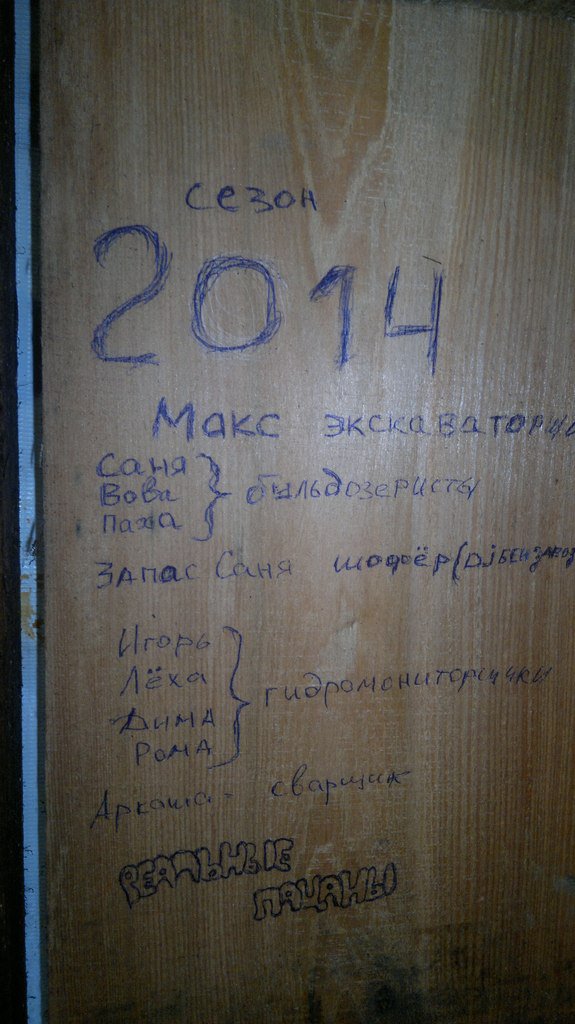 сезон
2014
Макс экскаваторщи
Саня
Вова
Паха
} бульдозеристы
Запас Саня шофёр (Dj
Игорь
Лёха
Дима
Рома
} гидромониторщики
Аркаша - сварщик
РЕАЛЬНЫЕ
ПАЦАНЫ